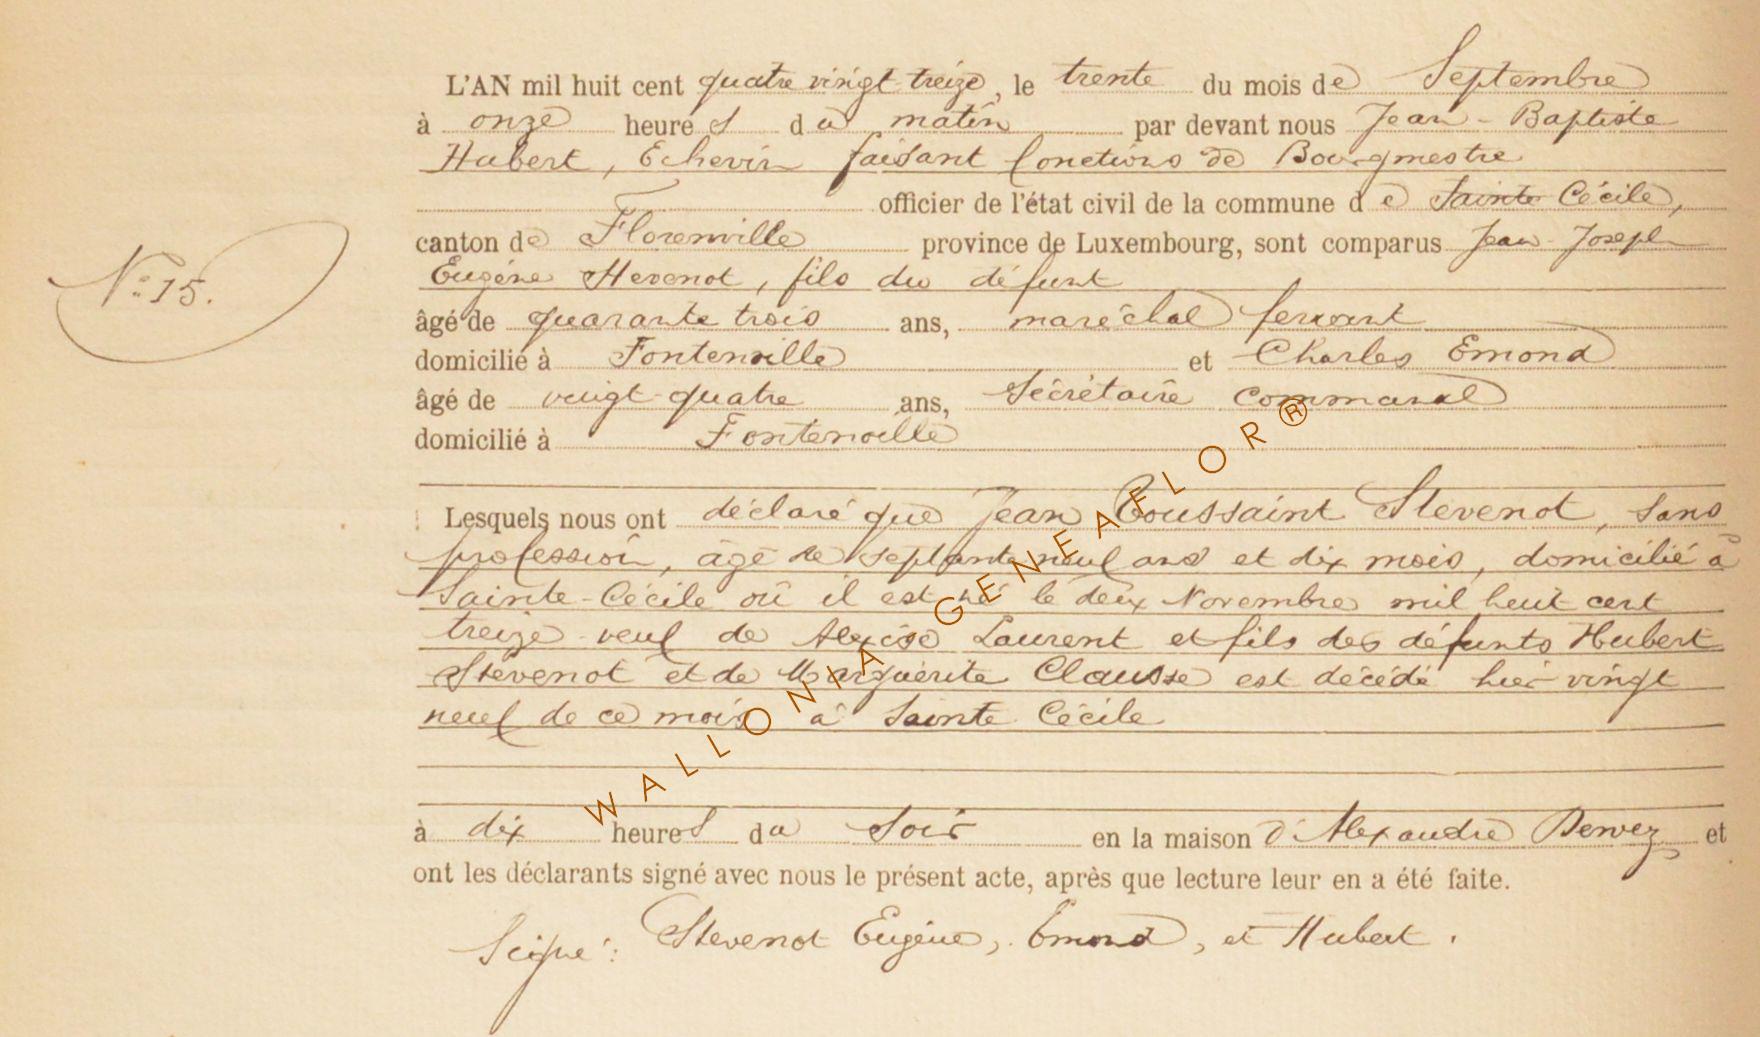 L'AN mil huit cent quatre vingt-treize, le trente du mois de Septembre
à onze heures du matin par devant nous Jean-Baptiste
Hubert, Echevin faisant fonctions de Bourgmestre
officier de l'état civil de la commune de Sainte Cécile,
canton de Florenville province de Luxembourg, sont comparus Jean-Joseph
Eugène Stevenot, fils du défunt
N° 15.
âgé de quarante trois ans, maréchal ferrant
domicilié à Fontenoille et Charles Emond
âgé de vingt-quatre ans, Secrétaire communal
domicilié à Fontenoille
Lesquels nous ont déclaré que Jean Toussaint Stevenot, sans
profession, âgé de septante neuf ans et dix mois, domicilié à
Sainte-Cécile où il est né le deux Novembre mil huit cent
treize veuf de Alexise Laurent et fils des défunts Hubert
Stevenot et de Marguerite Clausse est décédé hier vingt
neuf de ce mois à Sainte Cécile
à dix heures du soir en la maison d'Alexandre Dervez et
ont les déclarants signé avec nous le présent acte, après que lecture leur en a été faite.
Signé: Stevenot Eugène, Emond, et Hubert.
WALLONIA GENEAFLOR®